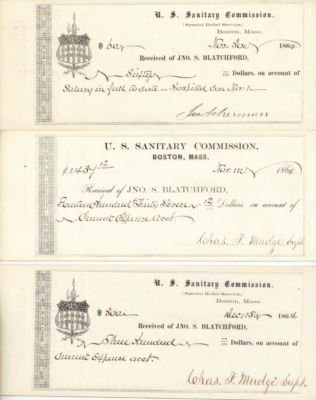 U. S. Sanitary Commission.
(Special Relief Service.)
Boston, Mass.
$ 60
Nov. 30 1864
Received of JNO. S. BLATCHFORD.
Sixty Dollars, on account of
Salary in full to date - Hospital Car No. 1
U. S. SANITARY COMMISSION,
BOSTON, MASS.
$ 1437 12
Nov. 1864.
Received of JNO. S. BLATCHFORD.
Fourteen Hundred Thirty Seven 12 Dollars, on account of
Current Expense acct.
Chas. F. Mudge Supt.
U. S. Sanitary Commission.
(Special Relief Service.)
Boston, Mass.
$ 300
Dec. 15 1864
Received of JNO. S. BLATCHFORD.
Three Hundred Dollars, on account of
Current Expense acct.
Chas. F. Mudge Supt.